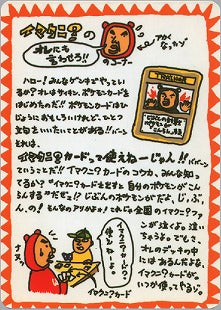 イマクニ?の
オレにも
言わせろ!!
のコーナー
アカく
なったゾ
ハロー!みんなゲンキでやってい
るか?オレはサイキン、ポケモンカードを
はじめたのだ!!ポケモンカードはじ
つにおもしろいけれど、ひとつ
文句をいいたいことがある!!
それは、
イマクニ?カードって使えねーじゃん!!
ということだ!!イマクニ?カードのコウカ、みんな知っ
てるか?"イマクニ?カードを出すと自分のポケモンがこん
らんする"だぜ。!?じぶんのポケモンがだぜ、じ、ぶ、
ん、の!そんなのアリかよ!これじゃ全国のイマクニ?ファ
ンが泣くよ。泣い
ちゃうよ。でもさ、
オレのデッキの中
にはあるんだよな、
イマクニ?カードが。
いつか使ってやるゾ。
イマクニ?カード
使えねーよ。
イマクニ?カード